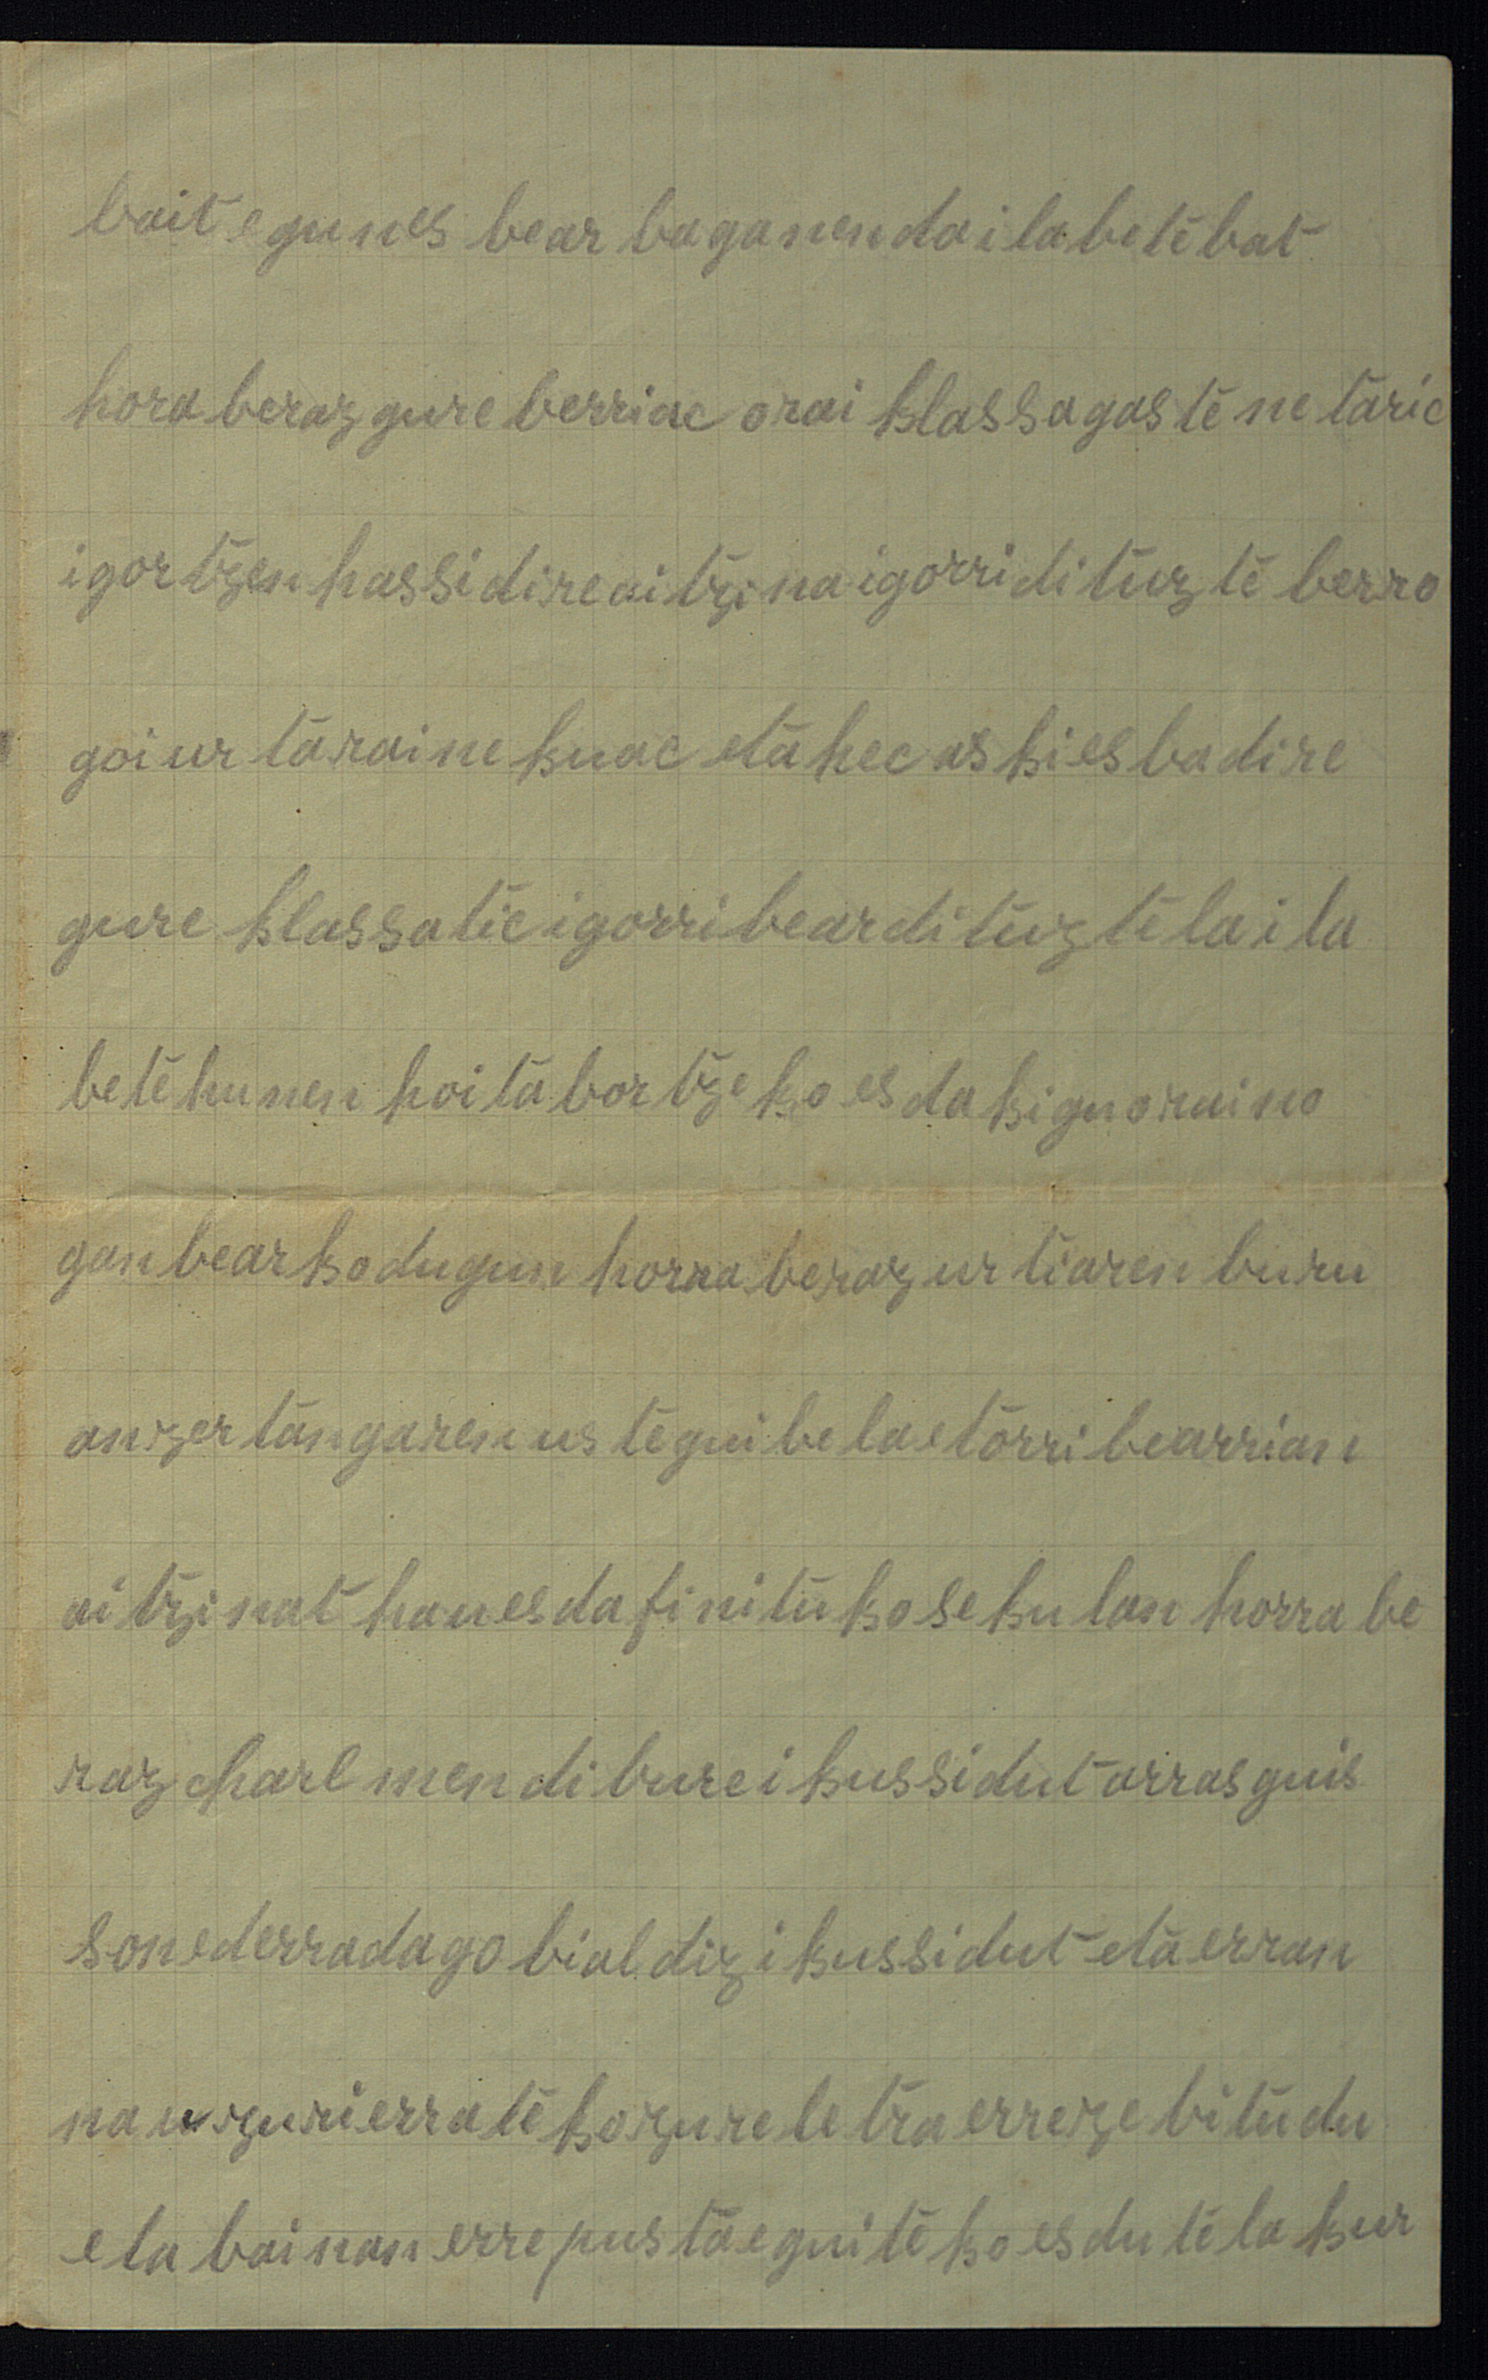 bait egunes bear baganenda ilabete bat
hora beraz gure berriac orai klassa gastenetaric
igortzen hassi dire aitzina igorri dituzte berro
goi urtarainekuac eta hec aski esbadire
gure klassatic igorri bear dituztela ila
bete hunen hoita bortzeko esdakigu oraino
gan bearko dugun horra beraz urtiaren buru
an zertan garen uste gui bela etorri bearrian
aitzinat hau esda finituko sekulan horra be
raz charl mendibure ikussi dut arras guis
son ederra dago bialdiz ikussi dut eta erran
nau zuri errateko zure letra errezebitu du
ela bainan errepusta eguiteko esdutela kur